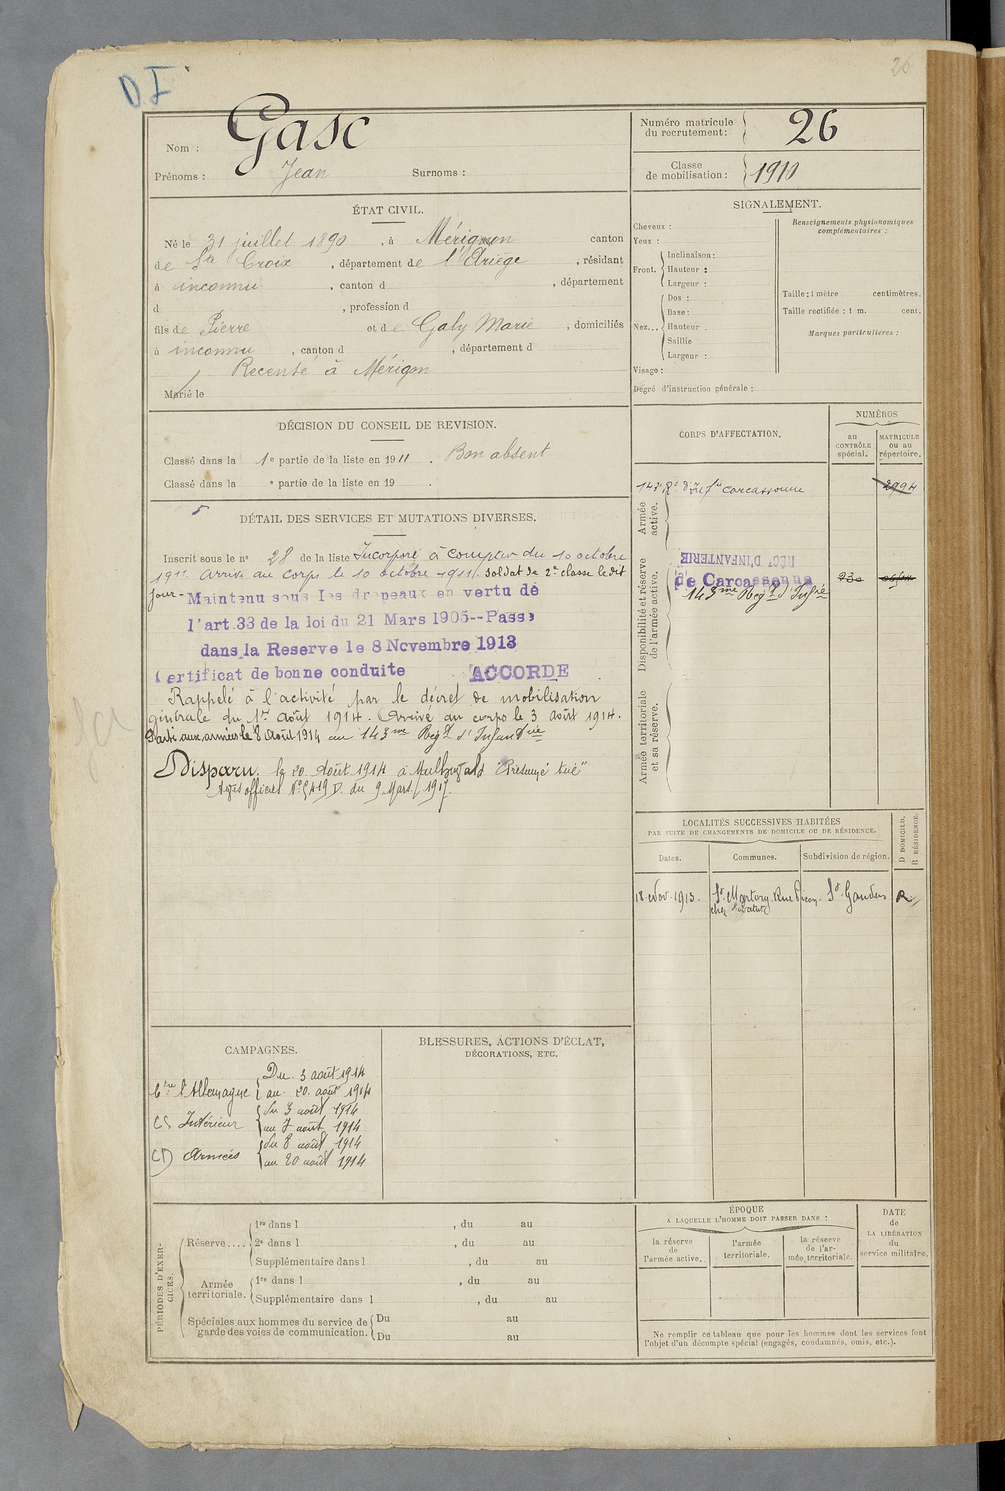 D.I
26
Nom : Gasc
Prénoms : Jean Surnoms :
Numéro matricule du recrutement: 26
Classe de mobilisation : 1910
ÉTAT CIVIL.
Né le 31 juillet 1890, à Mérignon canton
de Ste Croix, département de l'Ariège, résidant
à inconnu, canton d , département
d , profession d
fils de Pierre et de Galy Marie, domiciliés
à inconnu, canton d , département d
Recensé à Mérigon
Marié le
SIGNALEMENT.
Cheveux :
Yeux :
Front. Inclinaison :
Hauteur :
Largeur :
Nez... Dos :
Base :
Hauteur .
Saillie
Largeur :
Visage :
Dégré d'instruction générale :
Renseignements physionomiques complémentaires :
Taille : 1 mètre centimètres.
Taille rectifiée : 1 m. cent.
Marques particulières :
DÉCISION DU CONSEIL DE REVISION.
Classé dans la 1e partie de la liste en 1911 . Bon absent
Classé dans la e partie de la liste en 19 .
DÉTAIL DES SERVICES ET MUTATIONS DIVERSES.
Inscrit sous le no 28 de la liste Incorporé à compter du 10 octobre
1911 arrivé au corps le 10 octobre 1911. soldat de 2e classe le dit
jour - Maintenu sous les drapeaux en vertu de
l'art.33 de la loi du 21 Mars 1905--Passe
dans la Reserve le 8 Novembre 1913
Certificat de bonne conduite ACCORDE
Rappelé à l'activité par le décret de mobilisation
générale du 1er Août 1914. Arrivé au corps le 3 août 1914.
Parti aux armées le 8 Août 1914 au 143me Regt d'Infanterie
Disparu le 20 Août 1914 à "Présumé tué"
Avis officiel No 5419 D. du 9 Mars 1917.
CORPS D'AFFECTATION.
NUMÉROS
AU CONTRÔLE spécial.
MATRICULE OU AU répertoire.
Armée active.
143e Rt d'Infie Carcassonne 2994
Disponibilité et réserve de l'armée active.
REGt D'INFANTERIE
de Carcassonne
143me Regt d'Infie
Armée territoriale et sa réserve.
LOCALITÉS SUCCESSIVES HABITÉES
PAR SUITE DE CHANGEMENTS DE DOMICILE OU DE RÉSIDENCE.
Dates. Communes. Subdivision de région. D DOMICILE. R RÉSIDENCE.
18 Nov. 1913. St Martory Rue St Gaudens R
chez
CAMPAGNES.
Ctre l'Allemagne Du 3 août 1914
au 20 août 1914
CS Intérieur du 3 août 1914
au 7 août 1914
CD Armées du 8 août 1914
au 20 août 1914
BLESSURES, ACTIONS D'ÉCLAT,
DÉCORATIONS, ETC.
PÉRIODES D'EXERCICES.
Réserve.... 1re dans l , du au
2e dans l , du au
Supplémentaire dans l , du au
Armée territoriale. 1re dans l , du au
Supplémentaire dans l , du au
Spéciales aux hommes du service de garde des voies de communication. Du au
Du au
ÉPOQUE
A LAQUELLE L'HOMME DOIT PASSER DANS :
la réserve de l'armée active.
l'armée territoriale.
la réserve de l'armée territoriale.
DATE de LA LIBÉRATION du service militaire.
Ne remplir ce tableau que pour les hommes dont les services font
l'objet d'un décompte spécial (engagés, condamnés, omis, etc.).